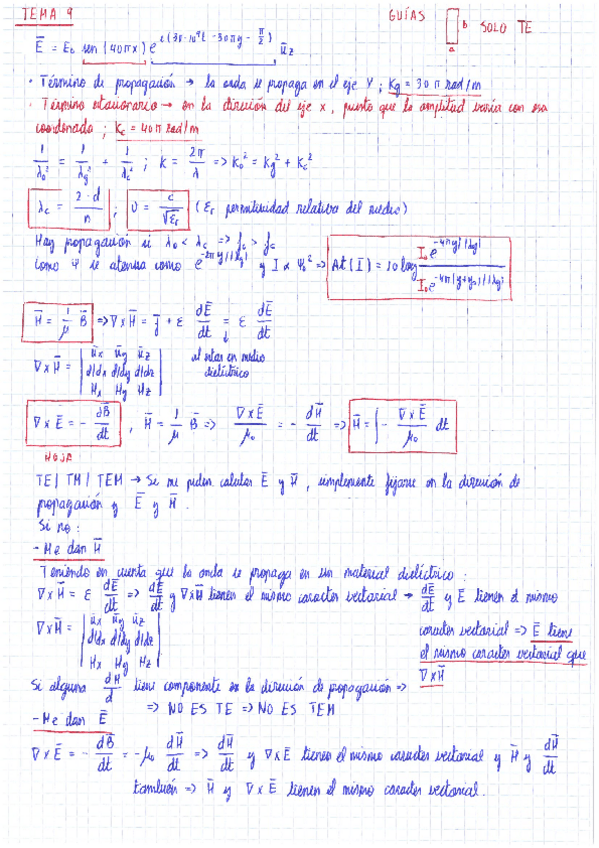 TEMA 9
GUÍAS b a SOLO TE
E̅ = E₀ sen(40πx) e^{i(3π·10⁹t − 30πy − π/2)} u̅z
· Término de propagación → la onda se propaga en el eje Y ; Kg = 30π rad/m
· Término estacionario → en la dirección del eje x, puesto que la amplitud varía con esa
coordenada ; Kc = 40π rad/m
1/λ₀² = 1/λg² + 1/λc² ; K = 2π/λ => K₀² = Kg² + Kc²
λc = 2·d/n ; v = c/√εr (εr permitividad relativa del medio)
Hay propagación si λ₀ < λc => f > fc
como Ψ se atenúa como e^{-2πy/|λg|} y I α Ψ₀² => At(I) = 10 log I₀e^{-4πy/|λg|} / I₀e^{-4π(y+y₀)/|λg|}
H̅ = 1/μ B̅ => ∇xH̅ = J̅ + ε dE̅/dt = ε dE̅/dt
↓
∇xH̅ = | u̅x u̅y u̅z | al estar en medio
| d/dx d/dy d/dz | dieléctrico
| Hx Hy Hz |
∇xE̅ = − dB̅/dt , H̅ = 1/μ B̅ => ∇xE̅/μ₀ = − dH̅/dt => H̅ = ∫ − ∇xE̅/μ₀ dt
HOJA
TE/TM/TEM → Si me piden calcular E̅ y H̅, simplemente fijarse en la dirección de
propagación y E̅ y H̅.
Si no:
- Me dan H̅
Teniendo en cuenta que la onda se propaga en un material dieléctrico:
∇xH̅ = ε dE̅/dt => dE̅/dt y ∇xH̅ tienen el mismo caracter vectorial → dE̅/dt y E̅ tienen el mismo
∇xH̅ = | u̅x u̅y u̅z | caracter vectorial => E̅ tiene
| d/dx d/dy d/dz | el mismo caracter vectorial que
| Hx Hy Hz | ∇xH̅
Si alguna dH/d tiene componente en la dirección de propagación =>
=> NO ES TE => NO ES TEM
- Me dan E̅
∇xE̅ = − dB̅/dt = −μ₀ dH̅/dt => dH̅/dt y ∇xE̅ tienen el mismo caracter vectorial y H̅ y dH̅/dt
también => H̅ y ∇xE̅ tienen el mismo caracter vectorial.